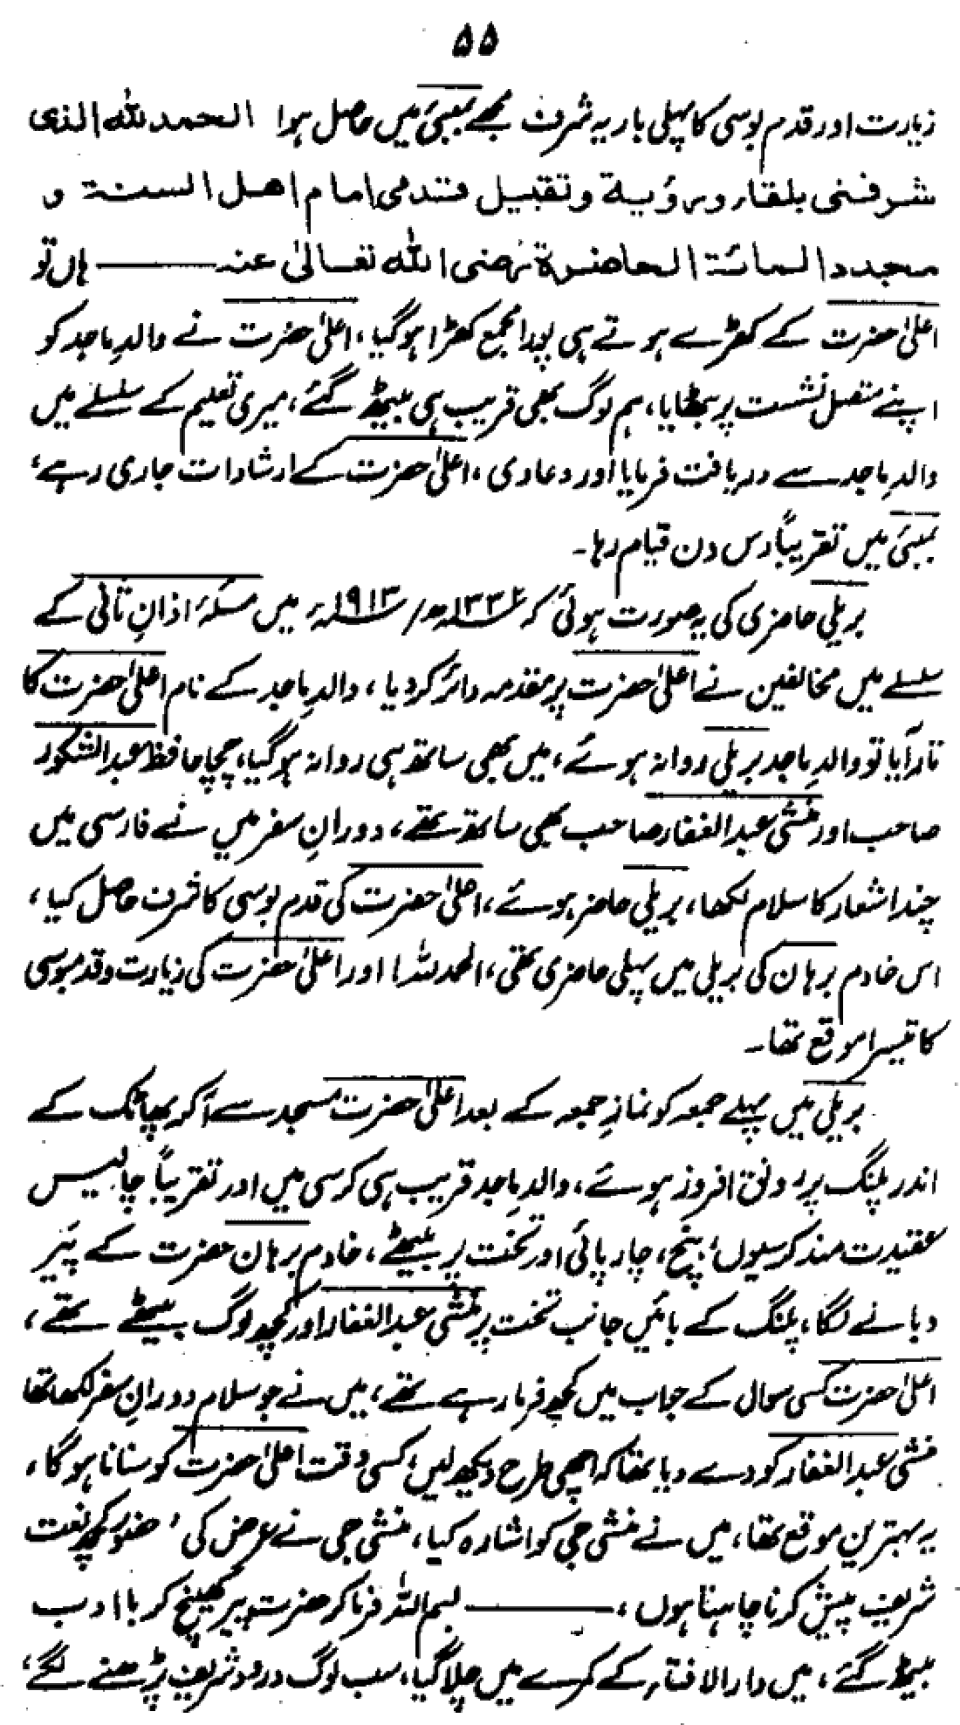 ۵۵
زیارت اور قدم بوسی کا پہلی بار یہ شرف مجھے بمبئی میں حاصل ہوا الحمد للہ الذی
شرفنی بلقاء و رؤیۃ و تقبیل قدمی امام اھل السنۃ و
مجدد المائۃ الحاضرۃ رضی اللہ تعالیٰ عنہ ——— ہاں تو
اعلیٰ حضرت کے کھڑے ہوتے ہی پورا مجمع کھڑا ہوگیا، اعلیٰ حضرت نے والدِ ماجد کو
اپنے متصل نشست پر بٹھایا، ہم لوگ بھی قریب ہی بیٹھ گئے، میری تعلیم کے سلسلے میں
والدِ ماجد سے دریافت فرمایا اور دعا دی، اعلیٰ حضرت کے ارشادات جاری رہے،
بمبئی میں تقریباً دس دن قیام رہا۔
بریلی حاضری کی یہ صورت ہوئی کہ ۱۳۳۲ھ/۱۹۱۳ء میں مسئلۂ اذانِ ثانی کے
سلسلے میں مخالفین نے اعلیٰ حضرت پر مقدمہ دائر کردیا، والدِ ماجد کے نام اعلیٰ حضرت کا
تار آیا تو والدِ ماجد بریلی روانہ ہوئے، میں بھی ساتھ ہی روانہ ہوگیا، چچا حافظ عبدالشکور
صاحب اور منشی عبدالغفار صاحب بھی ساتھ تھے، دورانِ سفر میں نے فارسی میں
چند اشعار کا سلام لکھا، بریلی حاضر ہوئے، اعلیٰ حضرت کی قدم بوسی کا شرف حاصل کیا،
اس خادم برھان کی بریلی میں پہلی حاضری تھی، الحمد للہ! اور اعلیٰ حضرت کی زیارت و قدمبوسی
کا تیسرا موقع تھا۔
بریلی میں پہلے جمعہ کو نمازِ جمعہ کے بعد اعلیٰ حضرت مسجد سے آکر پھاٹک کے
اندر پلنگ پر رونق افروز ہوئے، والدِ ماجد قریب ہی کرسی میں اور تقریباً چالیس
عقیدت مند کرسیوں، بنچ، چارپائی اور تخت پر بیٹھے، خادم برھان حضرت کے پَیر
دبانے لگا، پلنگ کے بائیں جانب تخت پر منشی عبدالغفار اور کچھ لوگ بیٹھے تھے،
اعلیٰ حضرت کسی سوال کے جواب میں کچھ فرما رہے تھے، میں نے جو سلام دورانِ سفر لکھا تھا
منشی عبدالغفار کو دے دیا تھا کہ اچھی طرح دیکھ لیں، کسی وقت اعلیٰ حضرت کو سنانا ہوگا،
یہ بہترین موقع تھا، میں نے منشی جی کو اشارہ کیا، منشی جی نے عرض کی، حضور کچھ نعت
شریف پیش کرنا چاہتا ہوں، ——— بسم اللہ فرما کر حضرت پیر کھینچ کر با ادب
بیٹھ گئے، میں دارالافتاء کے کمرے میں چلا گیا، سب لوگ درود شریف پڑھنے لگے،